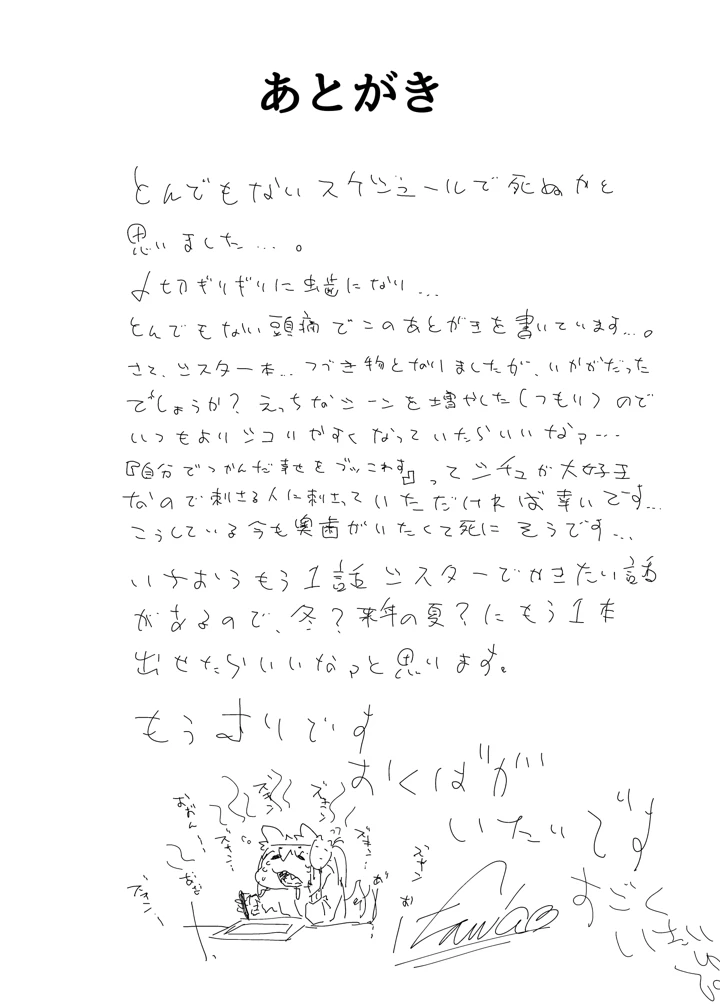 あとがき
とんでもないスケジュールで死ぬかと
思いました…。
〆切ぎりぎりに虫歯になり…
とんでもない頭痛でこのあとがきを書いています…。
さて、シスター本…つづき物となりましたが、いかがだった
でしょうか？えっちなシーンを増やした(つもり)ので
いつもよりシコりやすくなっていたらいいなァ…
『自分でつかんだ幸せをブッこわす』ってシチュが大好王
なので刺さる人に刺さっていただければ幸いです…
こうしている今も奥歯がいたくて死にそうです…
いちおうもう1話シスターでかきたい話
があるので、冬？来年の夏？にもう1本
出せたらいいなァと思います。
もうムリです
おくばが
いたいです
すごく
いたい
ズキン
ズキン
ズキン…
ズキン…
ズキン…
ズキン
おおん…